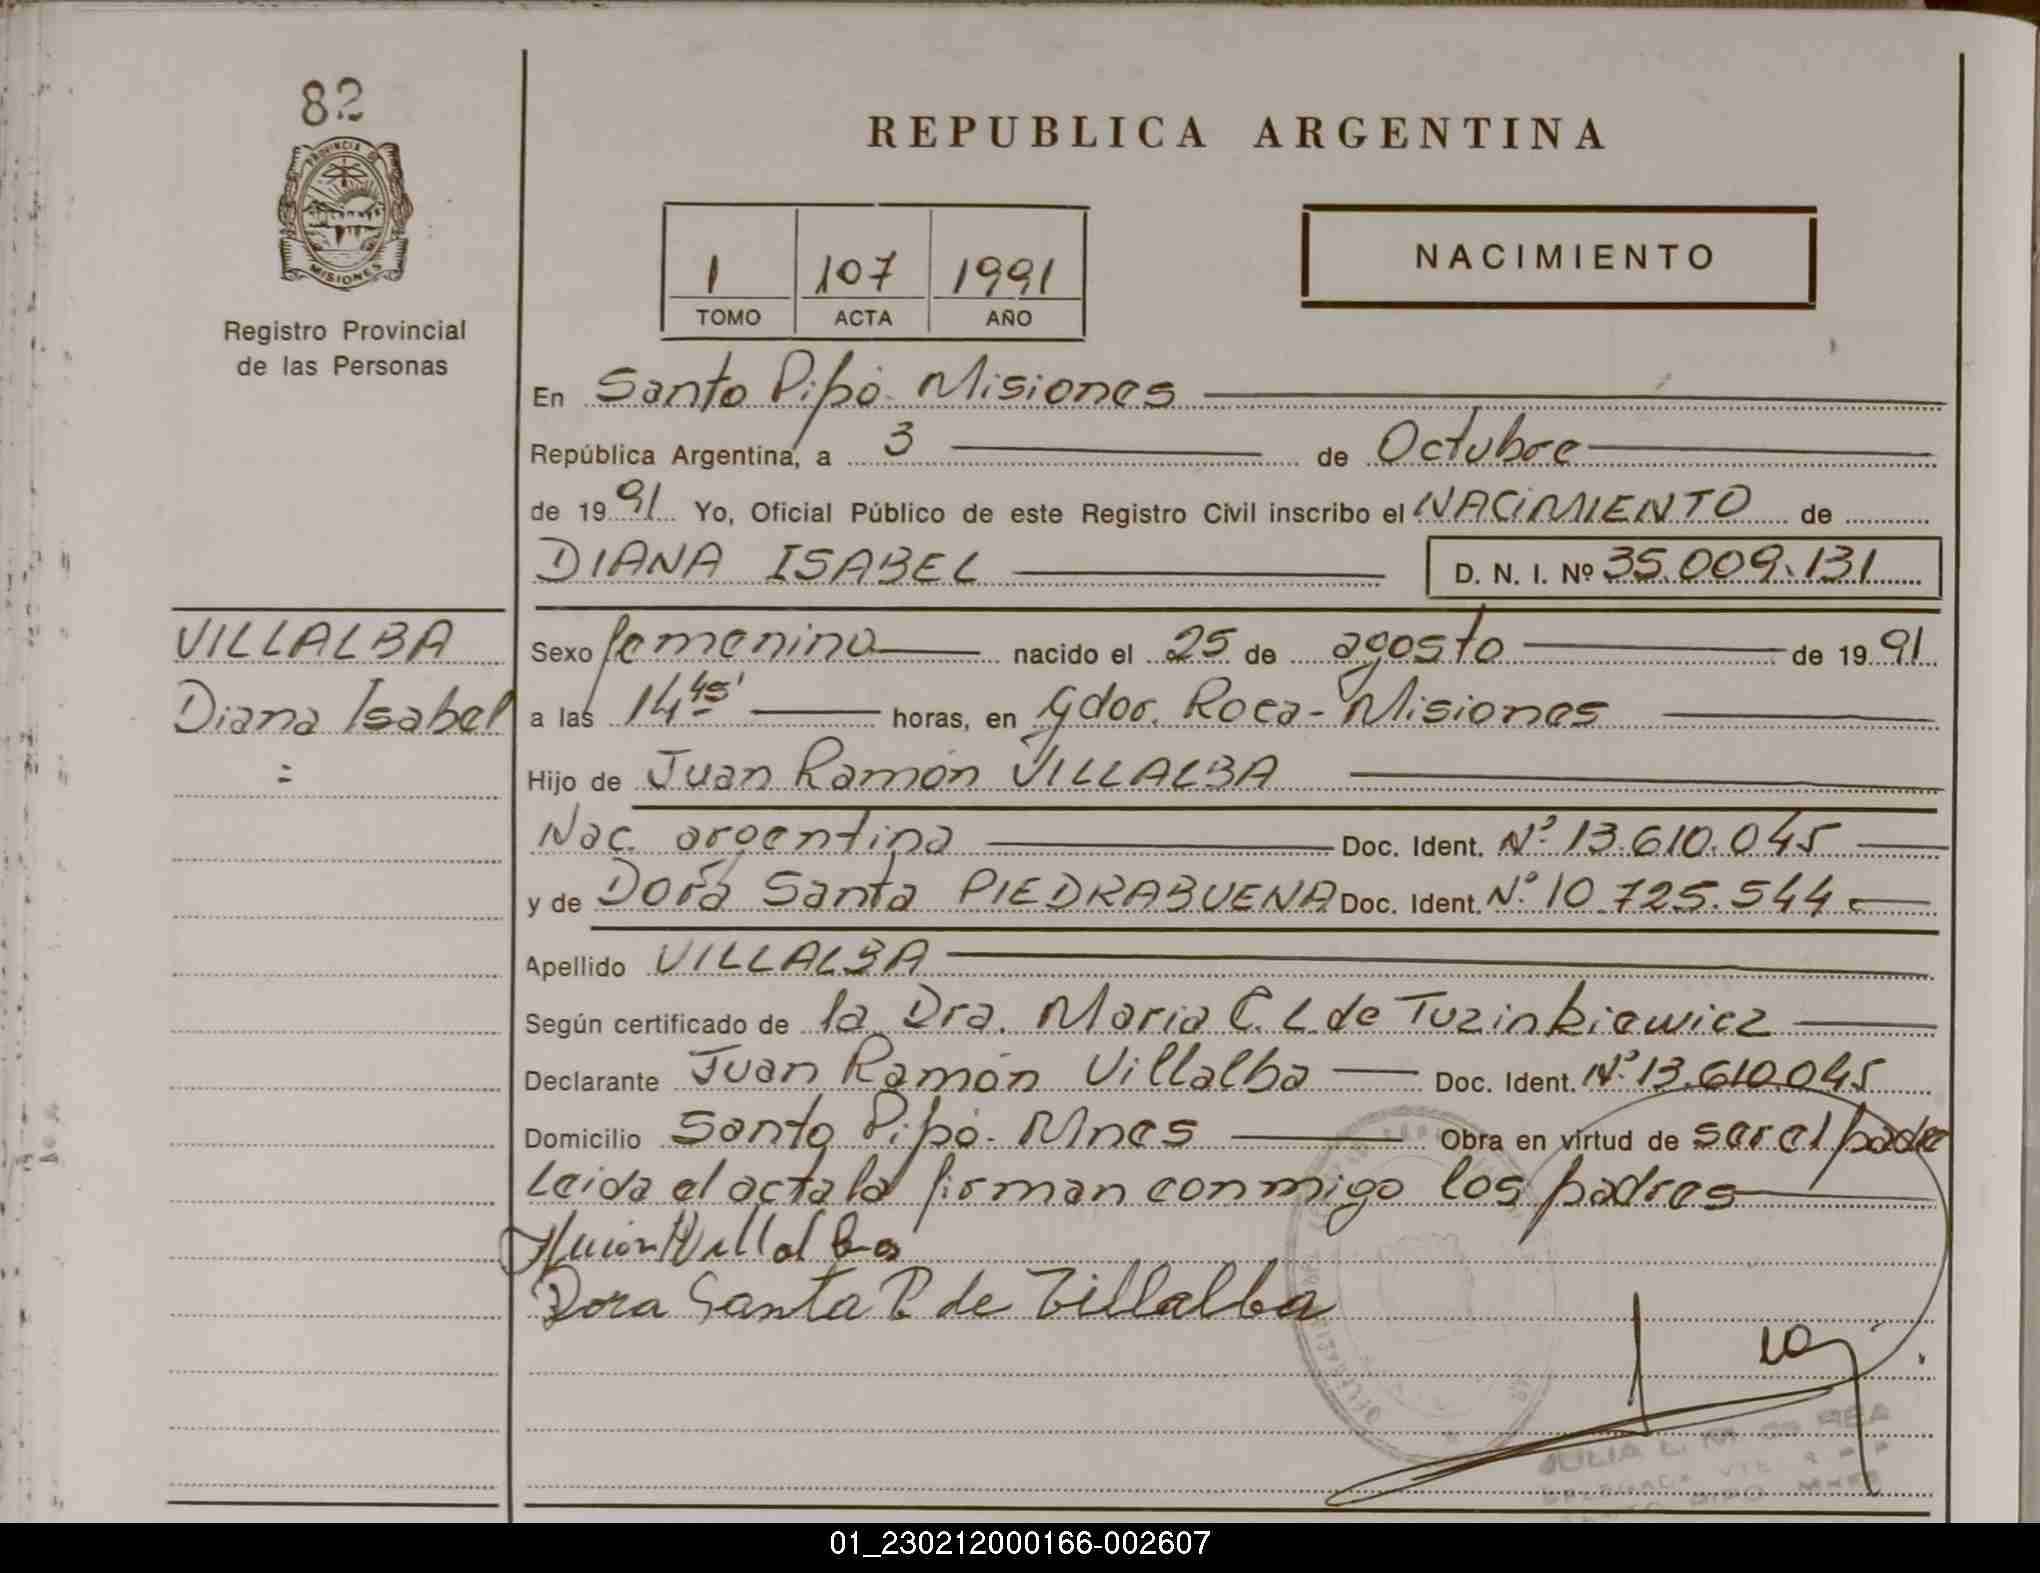 82
PROVINCIA DE
MISIONES
Registro Provincial
de las Personas
REPUBLICA ARGENTINA
1 107 1991
TOMO ACTA AÑO
NACIMIENTO
En Santo Pipó - Misiones
República Argentina, a 3 de Octubre
de 1991 Yo, Oficial Público de este Registro Civil inscribo el NACIMIENTO de
DIANA ISABEL D. N. I. Nº 35.009.131
VILLALBA
Diana Isabel
=
Sexo femenino nacido el 25 de agosto de 1991
a las 14 45' horas, en Gdor. Roca - Misiones
Hijo de Juan Ramón VILLALBA
Nac. argentina Doc. Ident. Nº 13.610.045
y de Dora Santa PIEDRABUENA Doc. Ident. Nº 10.725.544
Apellido VILLALBA
Según certificado de la Dra. Maria C. L. de Tuzinkiewicz
Declarante Juan Ramón Villalba Doc. Ident. Nº 13.610.045
Domicilio Santo Pipó - Mnes Obra en virtud de ser el padre
Leida el acta la firman conmigo los padres
Villalba
Dora Santa P de Villalba
JULIA L. M.
SANTO PIPO MNES
01_230212000166-002607